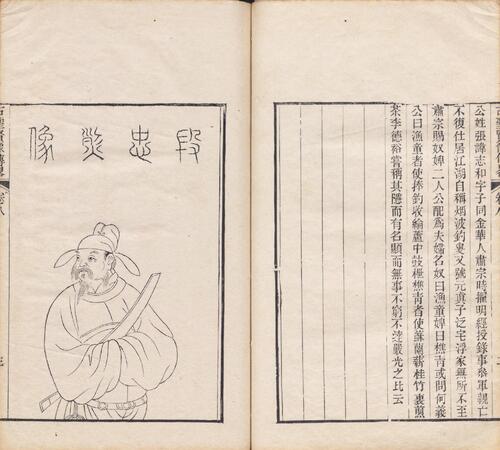 公姓張諱志和字子同金華人肅宗時擢明經授錄事叅軍親亡
不復仕居江湖自稱烟波釣叟又號元真子泛宅浮家無所不至
肅宗賜奴婢二人公配為夫婦名奴曰漁童婢曰樵青或問何義
公曰漁童者使捧釣收綸蘆中鼓枻樵青者使蘇蘭薪桂竹裏煎
茶李德裕嘗稱其隱而有名顯而無事不窮不達嚴光之比云
段忠烈像